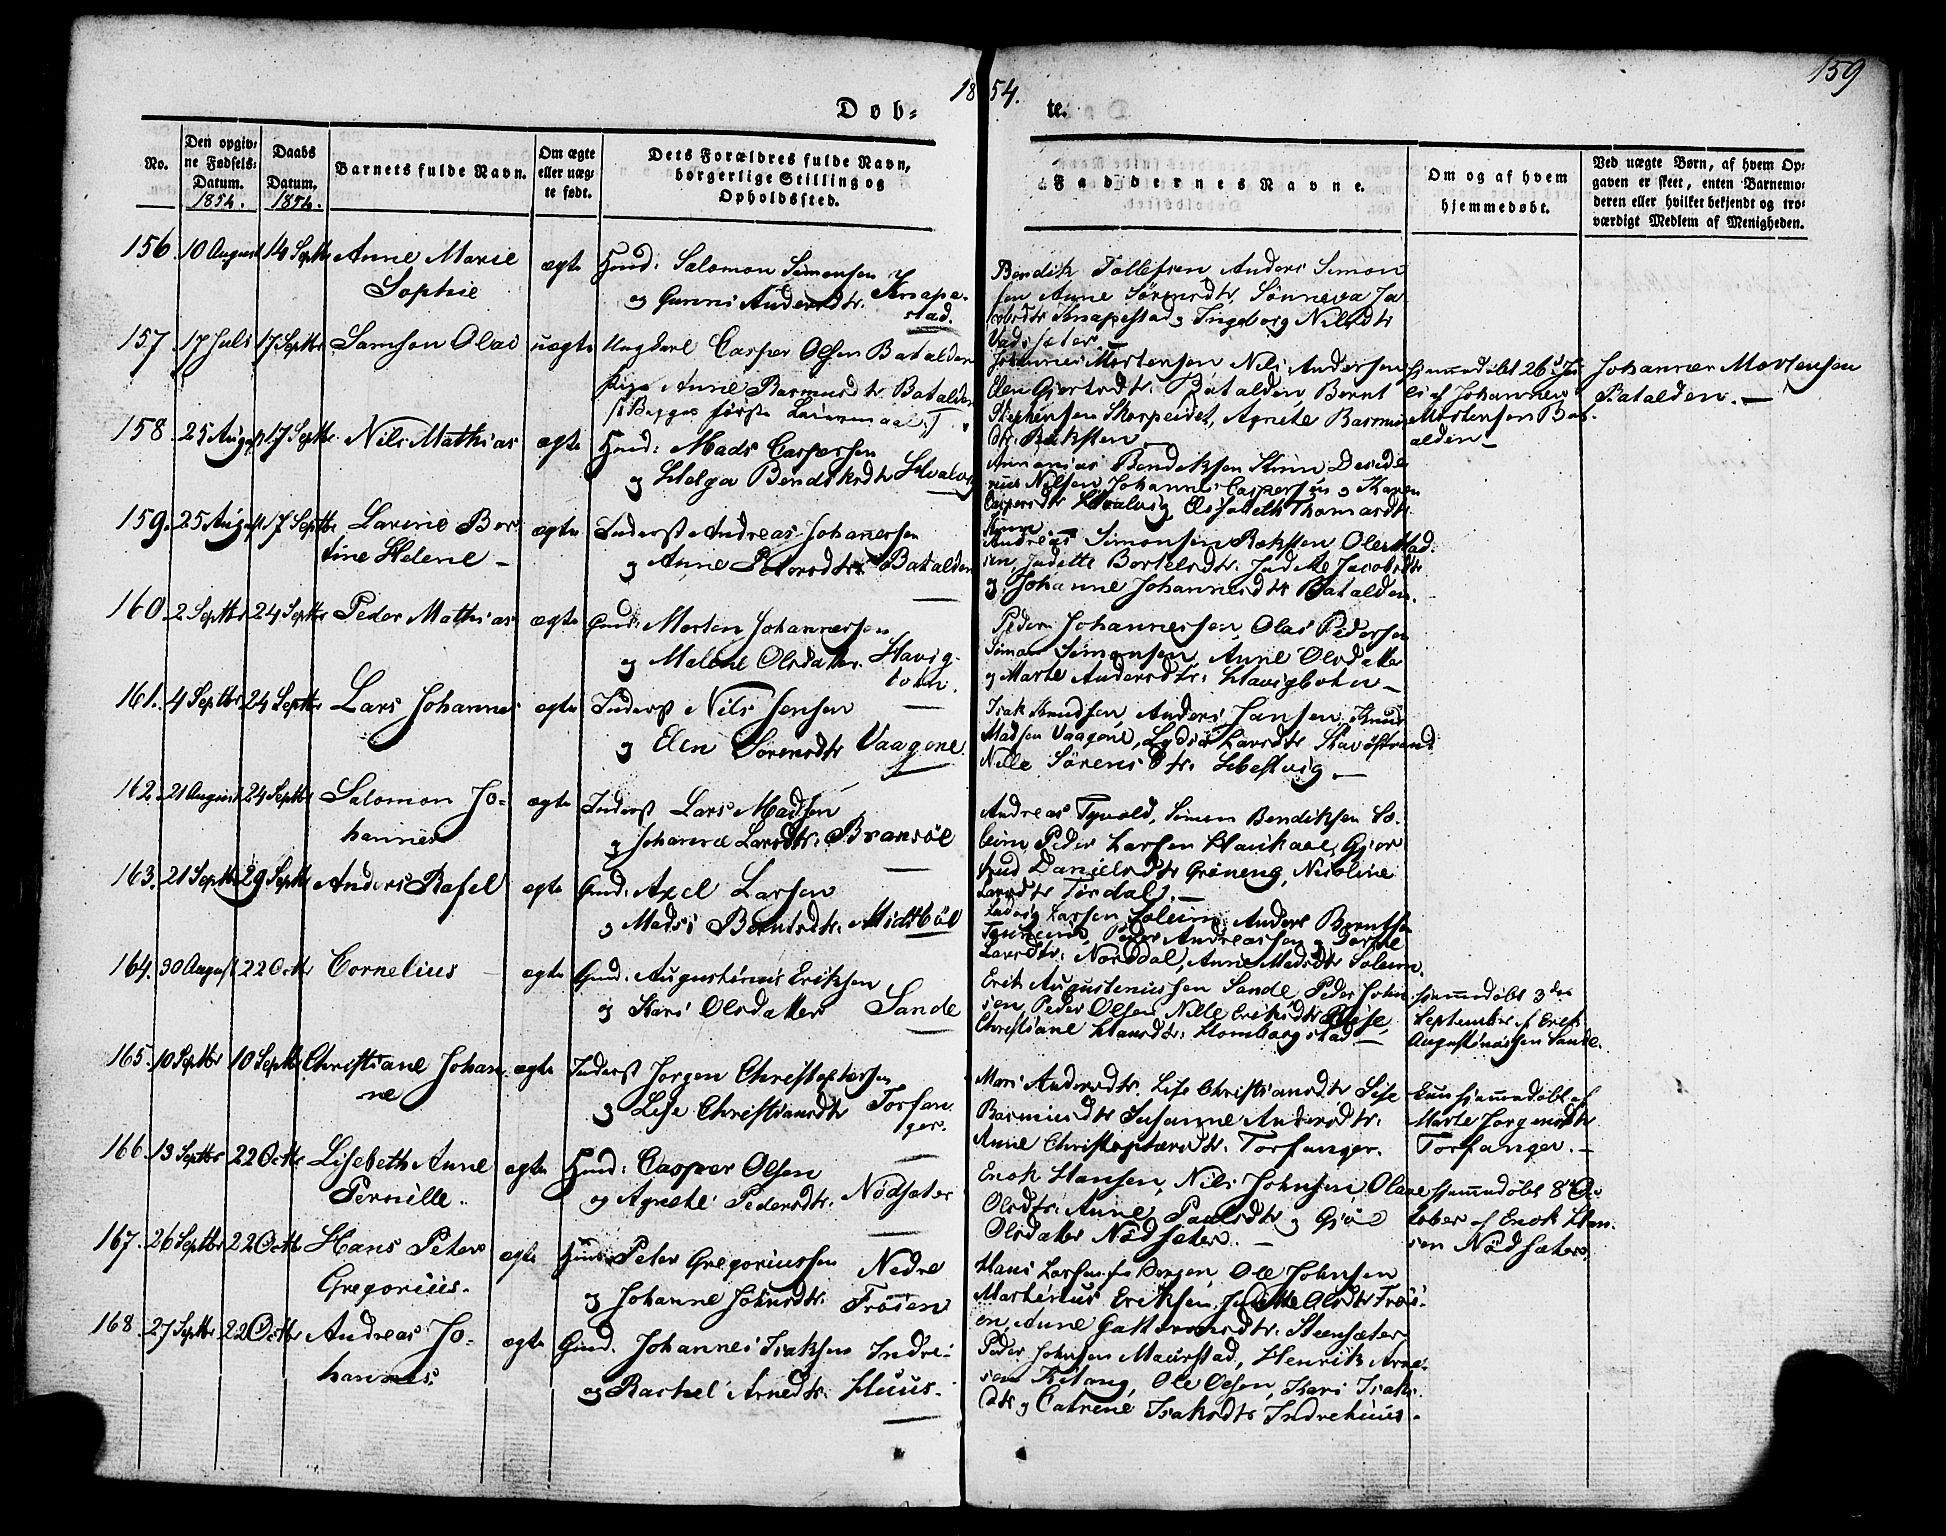 1854.
159
Døb-
te.
No.
Den opgiv-
ne Fødsels-
Datum.
1854.
Daabs
Datum.
1854.
Barnets fulde Navn.
Om ægte
eller uæg-
te født.
Dets Forældres fulde Navn,
borgerlige Stilling og
Opholdssted.
Faddernes Navne.
Om og af hvem
hjemmedøbt.
Ved uægte Børn, af hvem Op-
gaven er skeet, enten Barnemo-
deren eller hvilket bekjendt og tro-
værdigt Medlem af Menigheden.
156 10 August 14 Septbr Anne Marie
Sophie
ægte
Huusd: Salomon Simonsen
og Gunni Andersdtr. Knape-
stad.
Bendik Tollefsen, Anders Simon
sen Anne Sørensdtr, Sønneva Ja
cobsdtr Knapestad og Ingeborg Nilsdtr
Vadsæter.
157. 17 Juli 17 Septbr Samson Olai
uægte
Ungkarl Casper Olsen Batalden
Pige Anne Rasmusdtr Batalden
(Begges første Leiermaal.)
Johannes Mortensen Nils Andersen
Elen Gjertsdtr: Batalden Bernt
Stephensen Skorpeidet, Agnete Rasmus
dtr. Ræksten
hjemmedøbt 26de Ju
li af Johannes
Mortensen Bat
alden
Johannes Mortensen
Batalden.
158. 25 August 17 Septbr. Nils Mathias
ægte
Huusd: Mads Caspersen
og Helga Bendiksdtr Hvalvig
Annanias Bendiksen Kinn Deside
rius Nilsen, Johannes Caspersen og Karen
Caspersdtr Hvalvig Elisabeth Thomasdtr
Kinn
159. 25 August 17 Septbr Larine Ber
tine Helene
ægte
Inderst Andreas Johanesen
og Anne Petersdtr Batalden
Andreas Simonsen Ræksten Ole Mad
sen, Judette Bertelsdtr. Judette Jacobsdtr
og Johanne Johannesdtr Batalden.
160. 2 Septbr 24 Septbr Peder Mathias
ægte
Gmd: Morten Johannessen
og Malene Olsdatter Havig
botn.
Peder Johannessen, Olai Pedersen
Simon Simonsen Anne Olsdatter
og Marte Andersdtr: Havigbotn
161. 4 Septbr 24 Septbr Lars Johannes
ægte
Inderst Nils Jensen
og Elen Sørensdtr Vaagene
Isak Knudsen, Anders Jansen, Knud
Madsen Vaagene, Lydia Larsdtr Stavøstrand
Nille Sørensdtr. Hestvig
162. 21 August 24 Septbr Salomon Jo-
hannes
ægte
Inderst Lars Madsen
og Johanne Larsdtr: Bransøl
Andreas Tyvold, Simen Bendiksen So-
leim Peder Larsen Haukaae, Gjer
trud Danielsdtr Grøneng, Nicoline
Larsdtr Tørdal.
163. 21 Septbr 29 Septbr Anders Rasel
ægte
Gmd: Axel Larsen
og Madsi Berntsdtr: Midtbøl
Ludvig Larsen Soleim, Anders Berntsen
Peder Andreassen og Dorthe
Larsdtr: Norddal, Anne Madsdtr Soleim.
164. 30 August 22 Octbr Cornelius
ægte
Gmd: Augustinus Eriksen
og Kari Olsdatter Sande
Erik Augustinussen Sande Peder John
sen, Peder Olsen Nille Eriksdtr
Christiane Hansdtr: Hombergstad
hjemmedøbt 3die
September af Erik
Augustinussen Sande.
165. 10 Septbr 10 Septbr Christiane Johan
ne
ægte
Inderst Jørgen Christophersen
og Lise Christiansdtr Torfan-
ger.
Mari Andersdtr. Lise Christiansdtr Lise
Rasmusdtr Susanne Andersdtr:
Anne Christophersdtr. Torfanger.
Kun hjemmedøbt af
Marte Jørgensdtr
Torfanger.
166. 13 Septbr 22 Octbr Lisebeth Anne
Pernille.
ægte
Huusd: Casper Olsen
og Agnete Pedersdtr. Nødsæter
Enok Hansen, Nils Johnsen, Olave
Olsdtr: Anne Paulsdtr og Gjøa
Olsdatter Nødsæter.
hjemmedøbt 8de Oc
tober af Enok Han-
sen Nødsæter.
167. 26 Septbr 22 Octbr Hans Peter
Gregorius.
ægte
Huusd Peter Gregoriussen
og Johanne Johnsdtr: Nedre
Frøsen
Hans Larsen fra Bergen, Ole Johnsen
Martinius Eriksen Judithe Olsdtr Frøs-
en, Anne Guttormsdtr: Steensæter
168. 27 Septbr 22 Octbr Andreas Jo-
hannes.
ægte
Gmd. Johannes Isaksen Indre-
og Rachel Arnedtr. Huus.
Peder Johnsen Maurstad, Henrik Arne-
sen Kitang, Ole Olsen, Kari Isaks-
dtr og Catrene Isaksdtr Indrehuus.